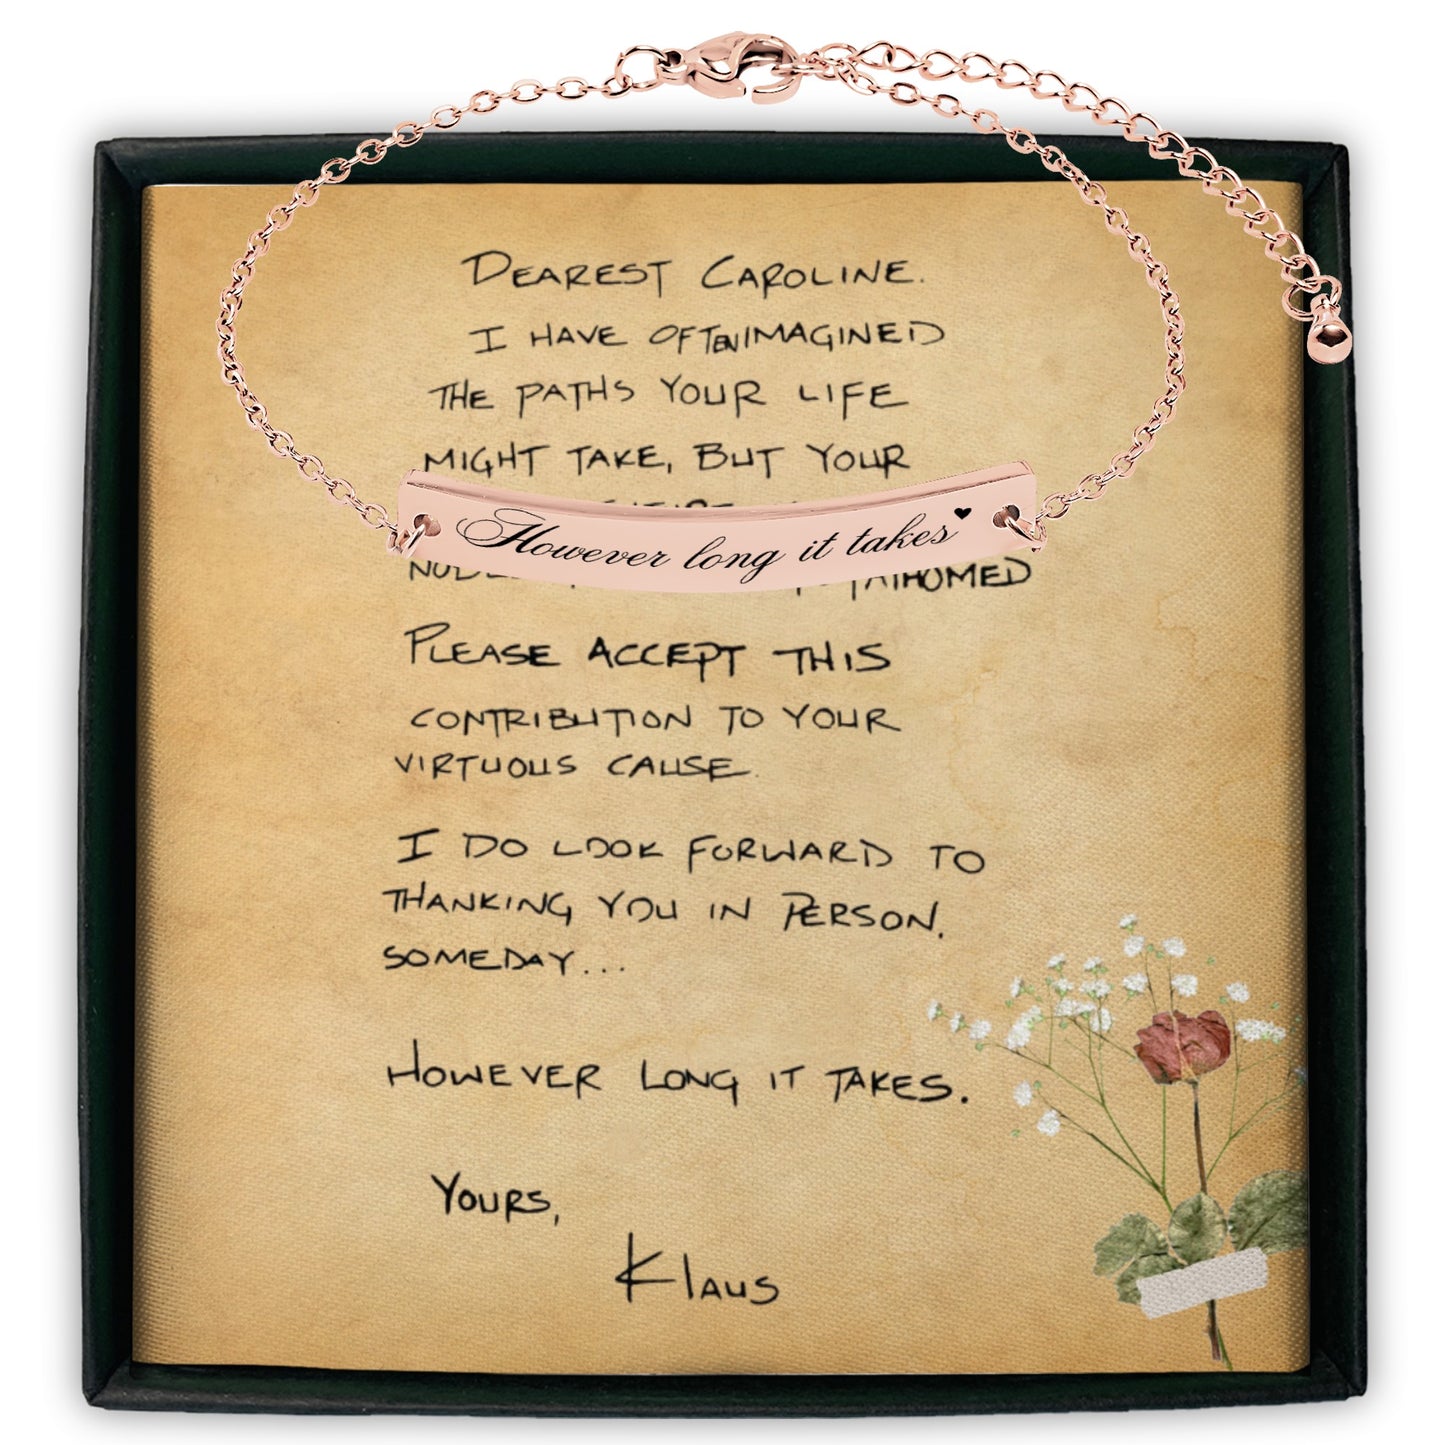 DEAREST CAROLINE.
I HAVE OFTEN IMAGINED
THE PATHS YOUR LIFE
MIGHT TAKE, BUT YOUR
However long it takes
FATHOMED
PLEASE ACCEPT THIS
CONTRIBUTION TO YOUR
VIRTUOUS CAUSE.
I DO LOOK FORWARD TO
THANKING YOU IN PERSON.
SOMEDAY...
HOWEVER LONG IT TAKES.
YOURS,
KLAUS